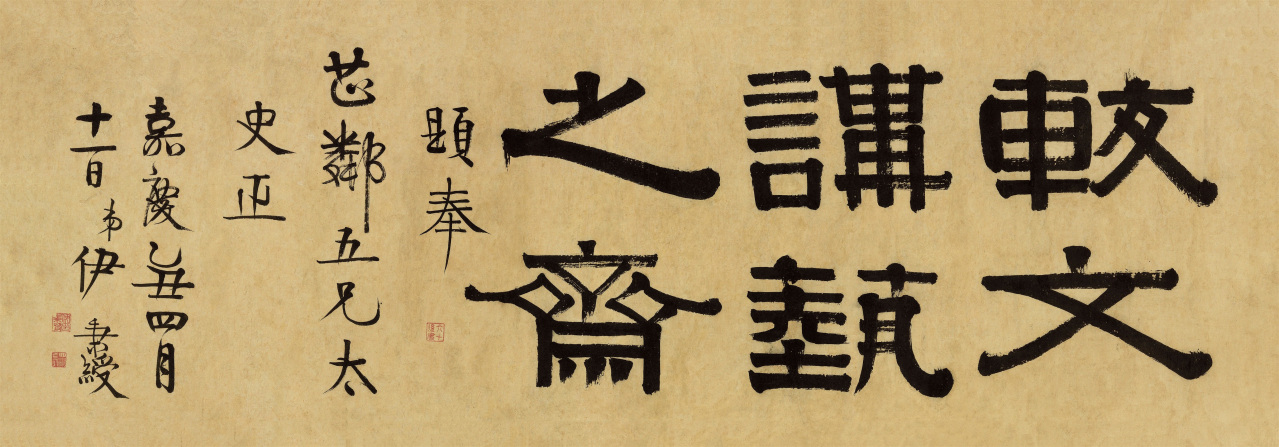 較文
講藝
之齋
題奉
芷鄰五兄太
史正
嘉慶乙丑四月
十一日弟伊秉綬